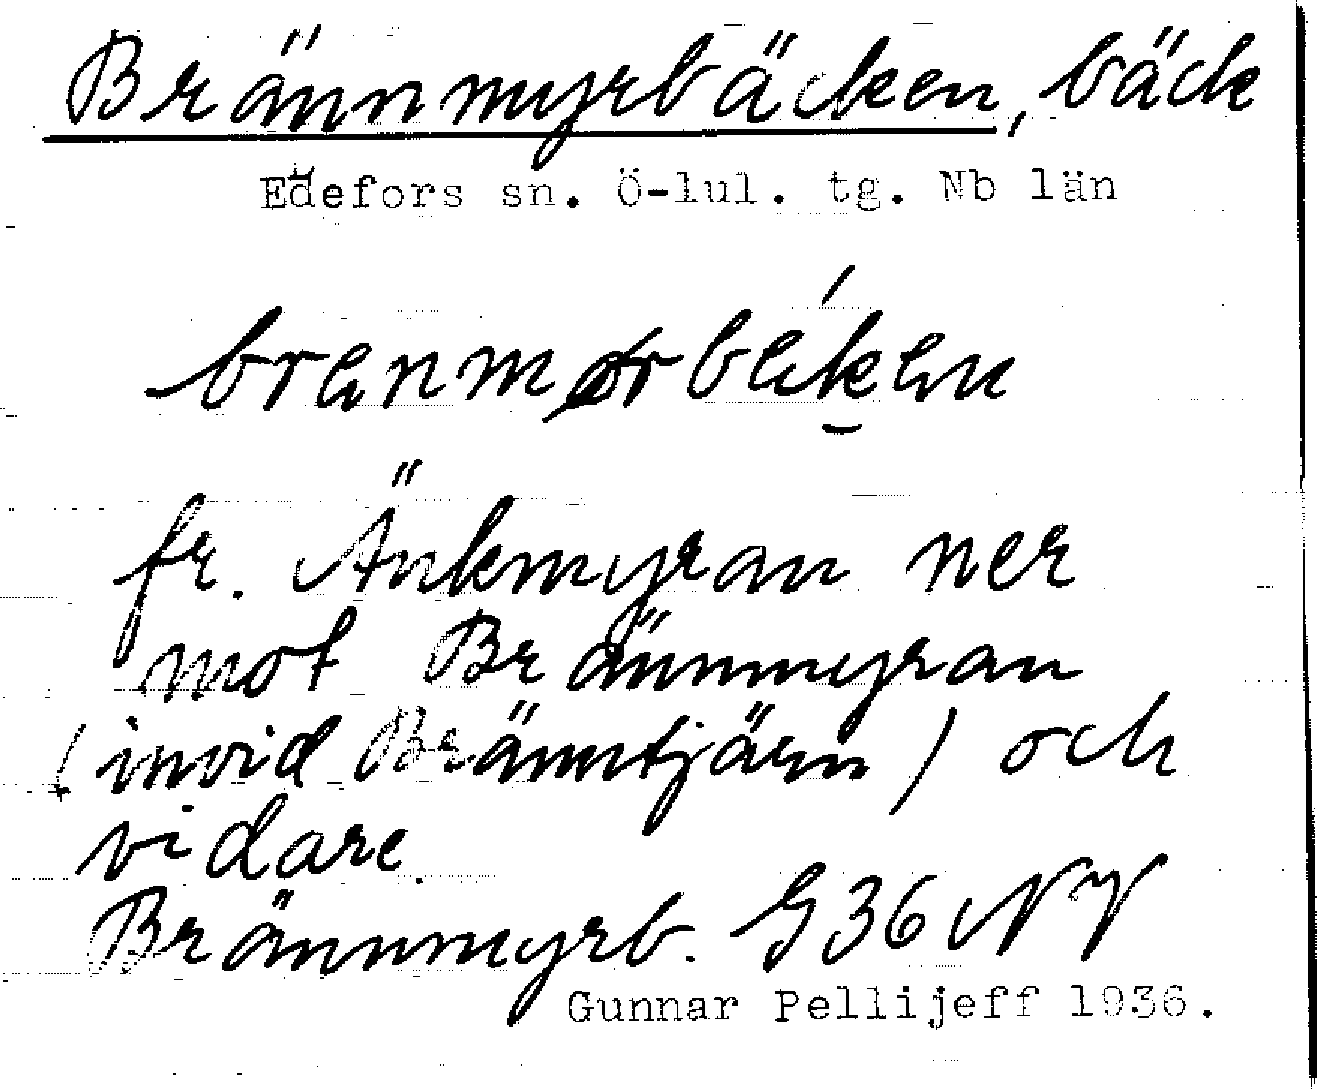 Brännmyrbäcken, bäck
Edefors sn. Ö-lul. tg. Nb län
fr. Änkmyran ner
mot Brännmyran
(invid Bränntjärn) och
vidare.
Brännmyrb. G36 NV
Gunnar Pellijeff 1936.